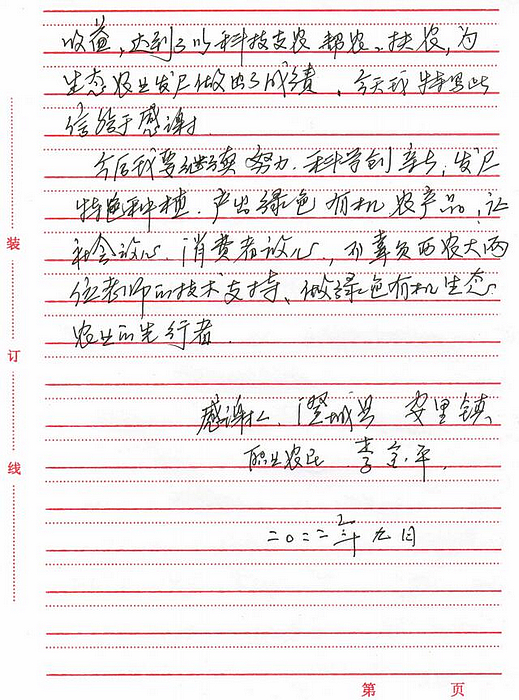 收益，达到了以科技支农、帮农、扶农，为
生态农业发展做出了成绩，今天我特写此
信给予感谢
今后我要继续努力，科学创新，发展
特色种植，产出绿色有机农产品，让
社会放心，消费者放心，不辜负西农大两
位老师的技术支持、做绿色有机生态
农业的先行者
感谢人、澄城县 安里镇、
职业农民 李金平
二〇二二年九月
装
订
线
第 页